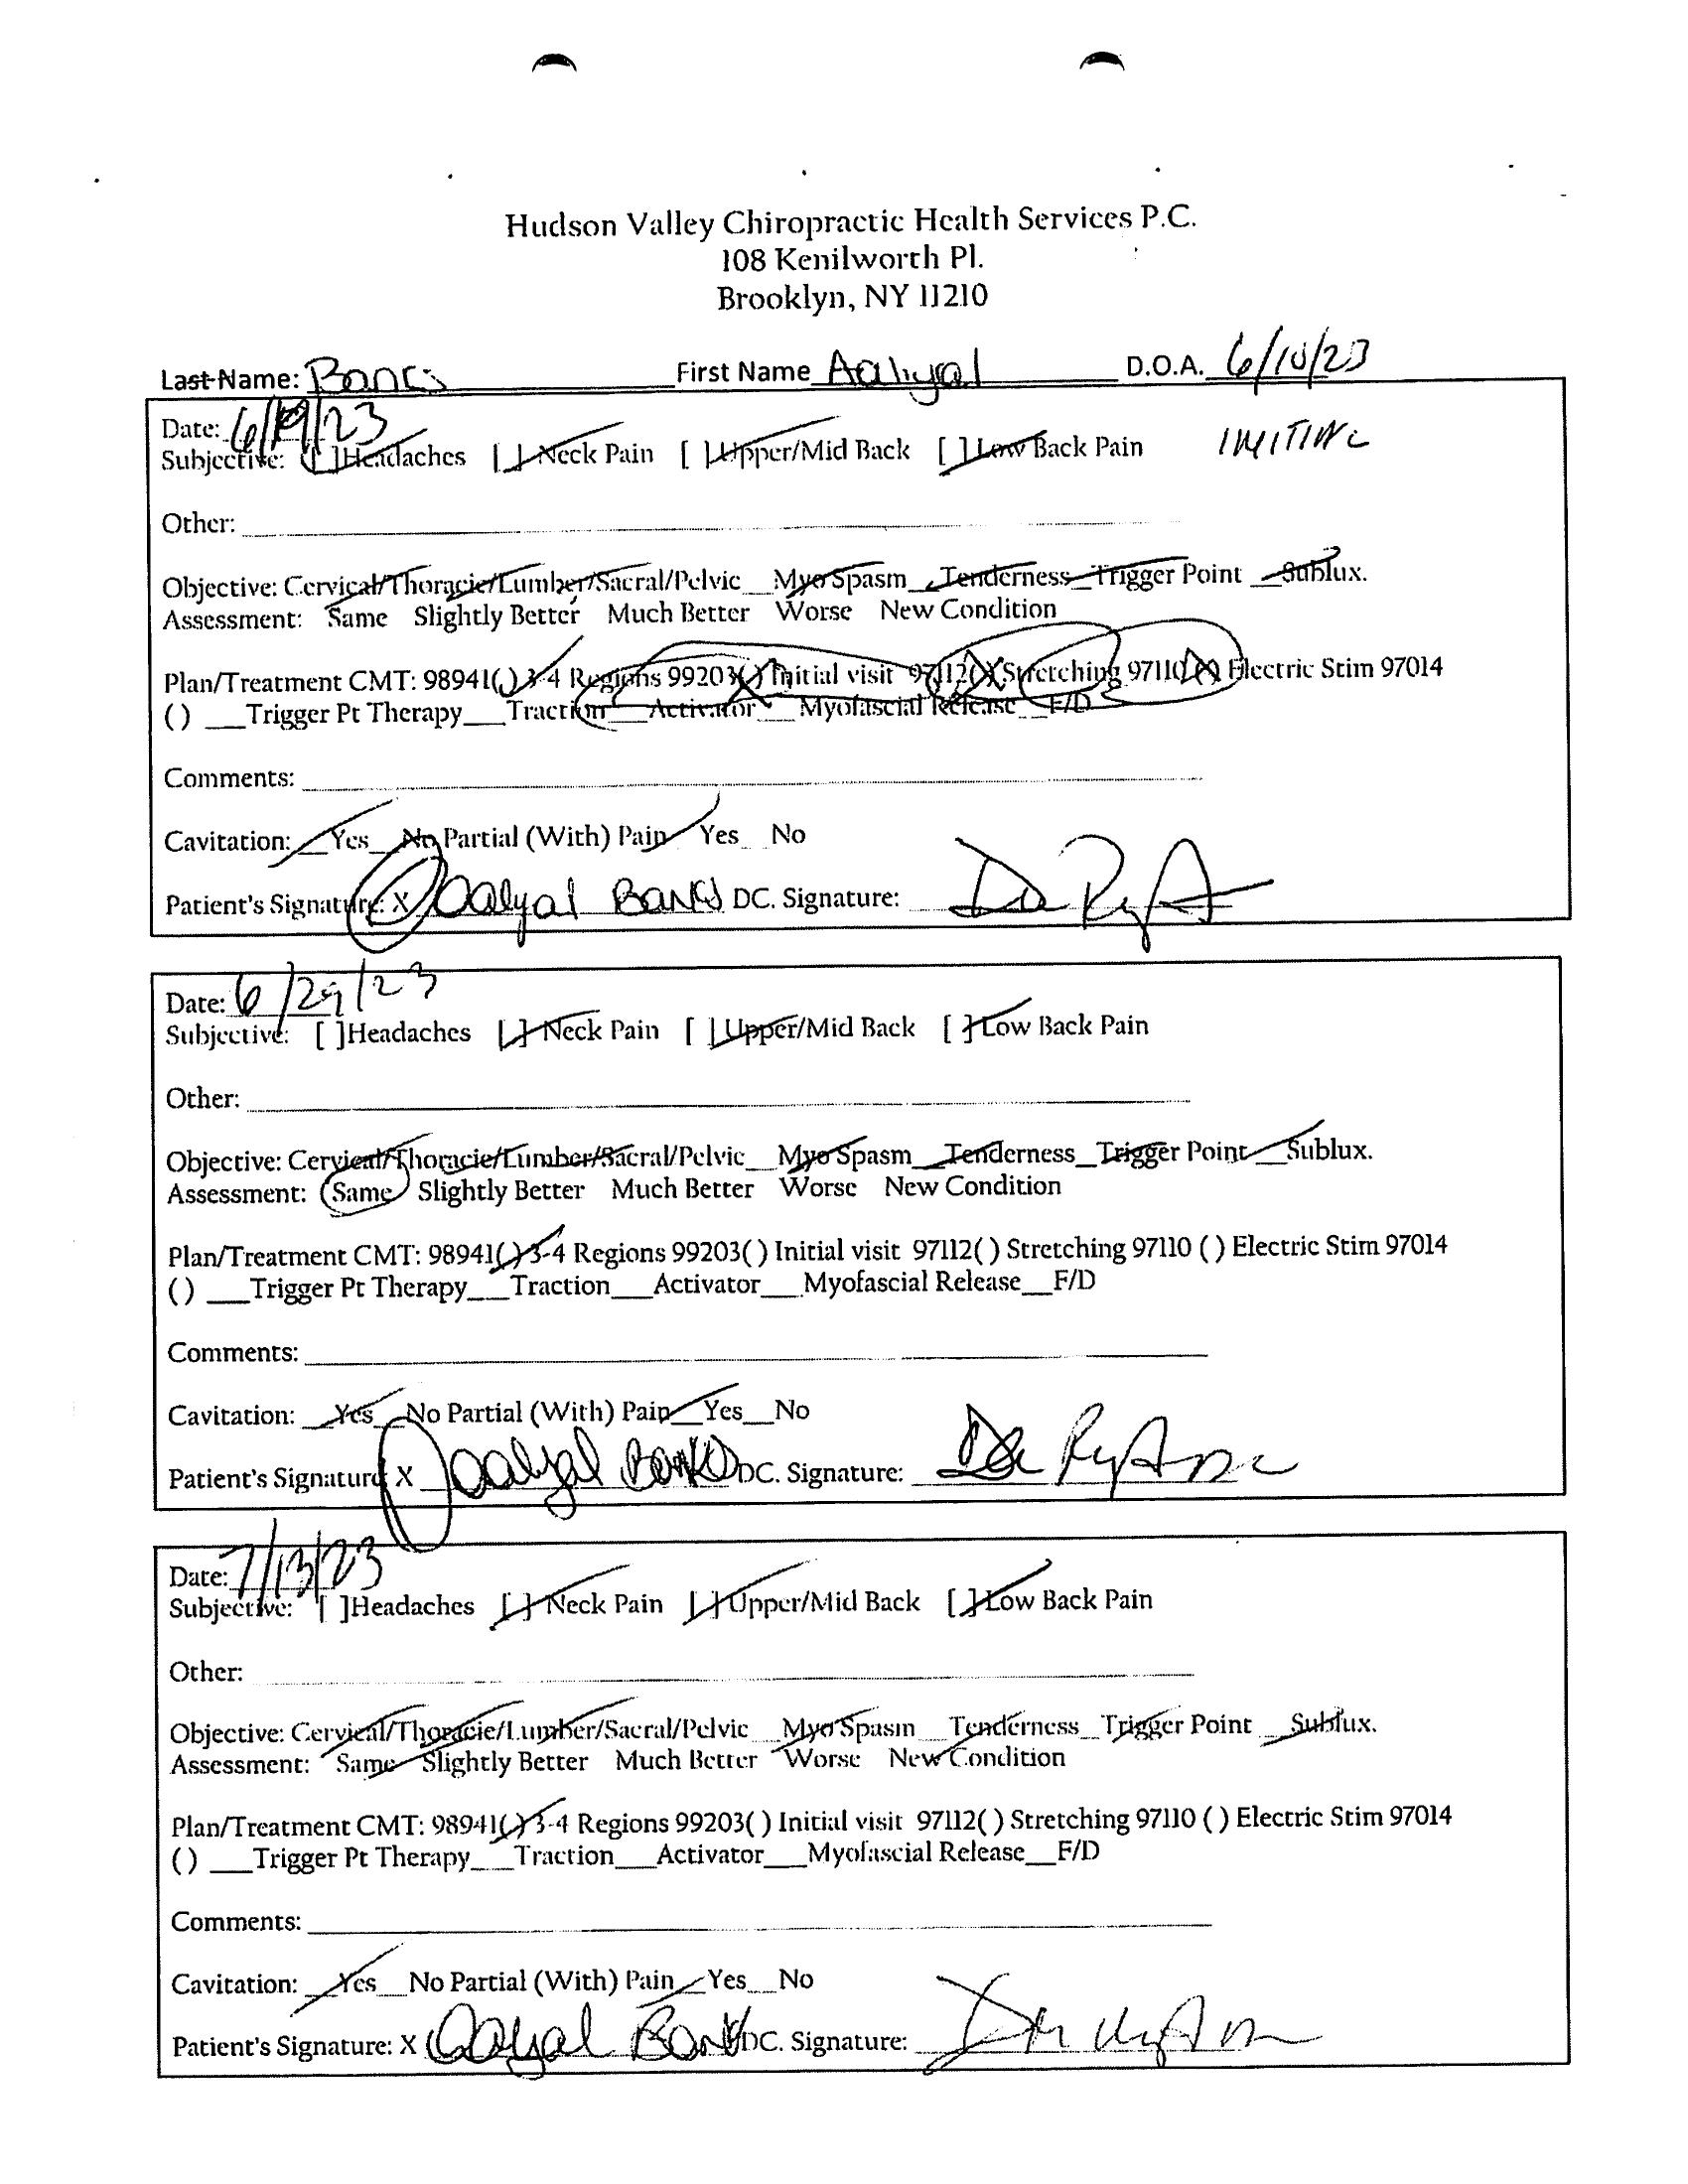 Hudson Valley Chiropractic Health Services P.C.
108 Kenilworth Pl.
Brooklyn, NY 11210
Last Name: Banks First Name Aaliyal D.O.A. 6/10/23
Date: 6/19/23
Subjective: [ ]Headaches [ ] Neck Pain [ ] Upper/Mid Back [ ] Low Back Pain
Other:
Objective: Cervical/Thoracic/Lumber/Sacral/Pelvic__MyoSpasm__Tenderness__Trigger Point __Sublux.
Assessment: Same Slightly Better Much Better Worse New Condition
Plan/Treatment CMT: 98941( ) 3-4 Regions 99203( ) Initial visit 97112( ) Stretching 97110 ( ) Electric Stim 97014
( ) ___Trigger Pt Therapy___Traction___Activator___Myofascial Release__F/D
Comments:
Cavitation: __Yes__No Partial (With) Pain__Yes__No
Patient's Signature: X Aalyal Banks DC. Signature:
Date: 6/29/23
Subjective: [ ]Headaches [ ] Neck Pain [ ] Upper/Mid Back [ ] Low Back Pain
Other:
Objective: Cervical/Thoracic/Lumber/Sacral/Pelvic__MyoSpasm__Tenderness__Trigger Point__Sublux.
Assessment: Same Slightly Better Much Better Worse New Condition
Plan/Treatment CMT: 98941( ) 3-4 Regions 99203( ) Initial visit 97112( ) Stretching 97110 ( ) Electric Stim 97014
( ) ___Trigger Pt Therapy___Traction___Activator___Myofascial Release__F/D
Comments:
Cavitation: __Yes__No Partial (With) Pain__Yes__No
Patient's Signature X Aalyal Banks DC. Signature:
Date: 7/13/23
Subjective: [ ]Headaches [ ] Neck Pain [ ] Upper/Mid Back [ ] Low Back Pain
Other:
Objective: Cervical/Thoracic/Lumber/Sacral/Pelvic__MyoSpasm__Tenderness__Trigger Point __Sublux.
Assessment: Same Slightly Better Much Better Worse New Condition
Plan/Treatment CMT: 98941( ) 3-4 Regions 99203( ) Initial visit 97112( ) Stretching 97110 ( ) Electric Stim 97014
( ) ___Trigger Pt Therapy___Traction___Activator___Myofascial Release__F/D
Comments:
Cavitation: __Yes__No Partial (With) Pain__Yes__No
Patient's Signature: X Aalyal Banks DC. Signature: